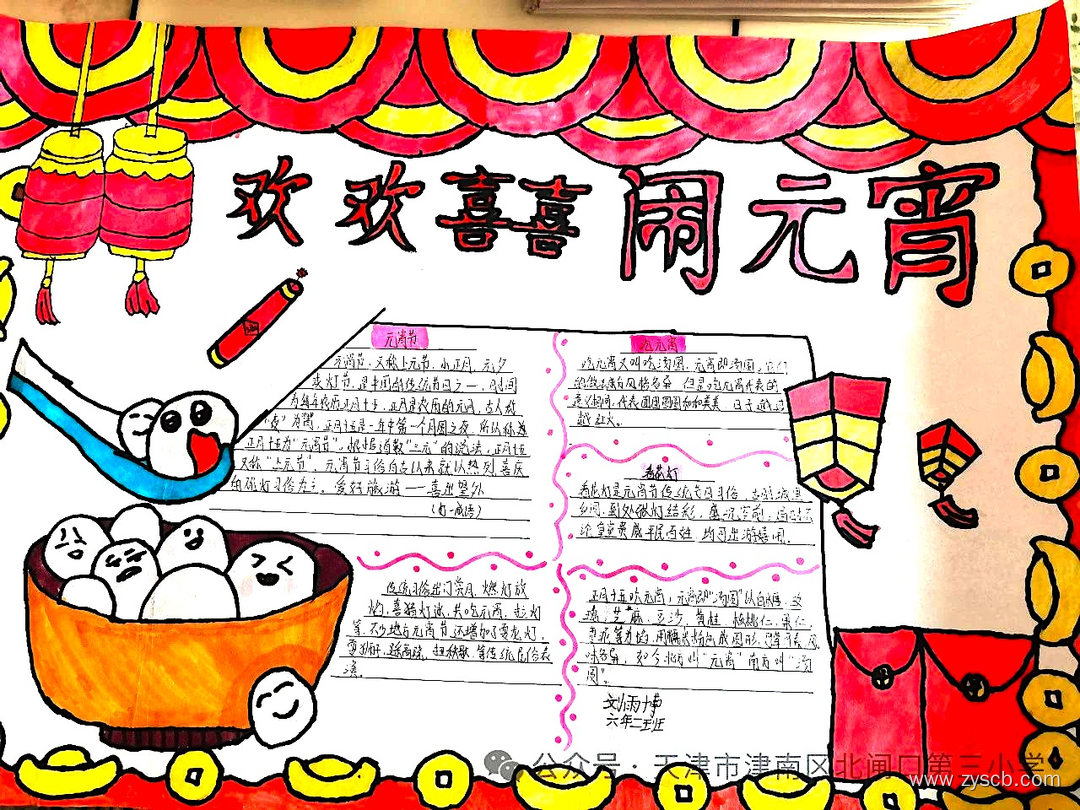 欢欢喜喜闹元宵
元宵节
元宵节，又称上元节，小正月，元夕
灯节，是中国的传统节日之一，时间
为每年农历正月十五，正月是农历的元月，古人称
"夜"为"宵"，正月十五是一年中第一个月圆之夜，所以称
正月十五为"元宵节"，根据道教"三元"的说法，正月十五
又称"上元节"，元宵节习俗自古以来就以热烈喜庆
的观灯习俗为主。爱好旅游——喜出望外
(打一成语)
传统习俗出门赏月，燃灯放
焰，喜猜灯谜，共吃元宵，
等，不少地方元宵节还增加了耍龙灯，
耍狮子，踩高跷，扭秧歌，等传统民俗表
演。
吃元宵
吃元宵又叫吃汤圆，元宵即汤圆，它们
的做法 风格各异，但是吃元宵代表的
意义相同，代表团团圆圆和和美美，日子越过
越红火。
看花灯
看花灯是元宵节传统节日习俗，
间，到处张灯结彩，盛况空前，
论 平民百姓，均可出游嬉闹。
正月十五吃元宵，元宵即"汤圆"以白糖、
芝麻、豆沙、黄桂、核桃仁、果仁、
枣泥等为馅，用糯米粉包成圆形，
味各异，如今北方叫"元宵"南方叫"汤
圆"。
刘雨博
六年二班
公众号·天津市津南区北闸口第三小学
www.zyscb.com